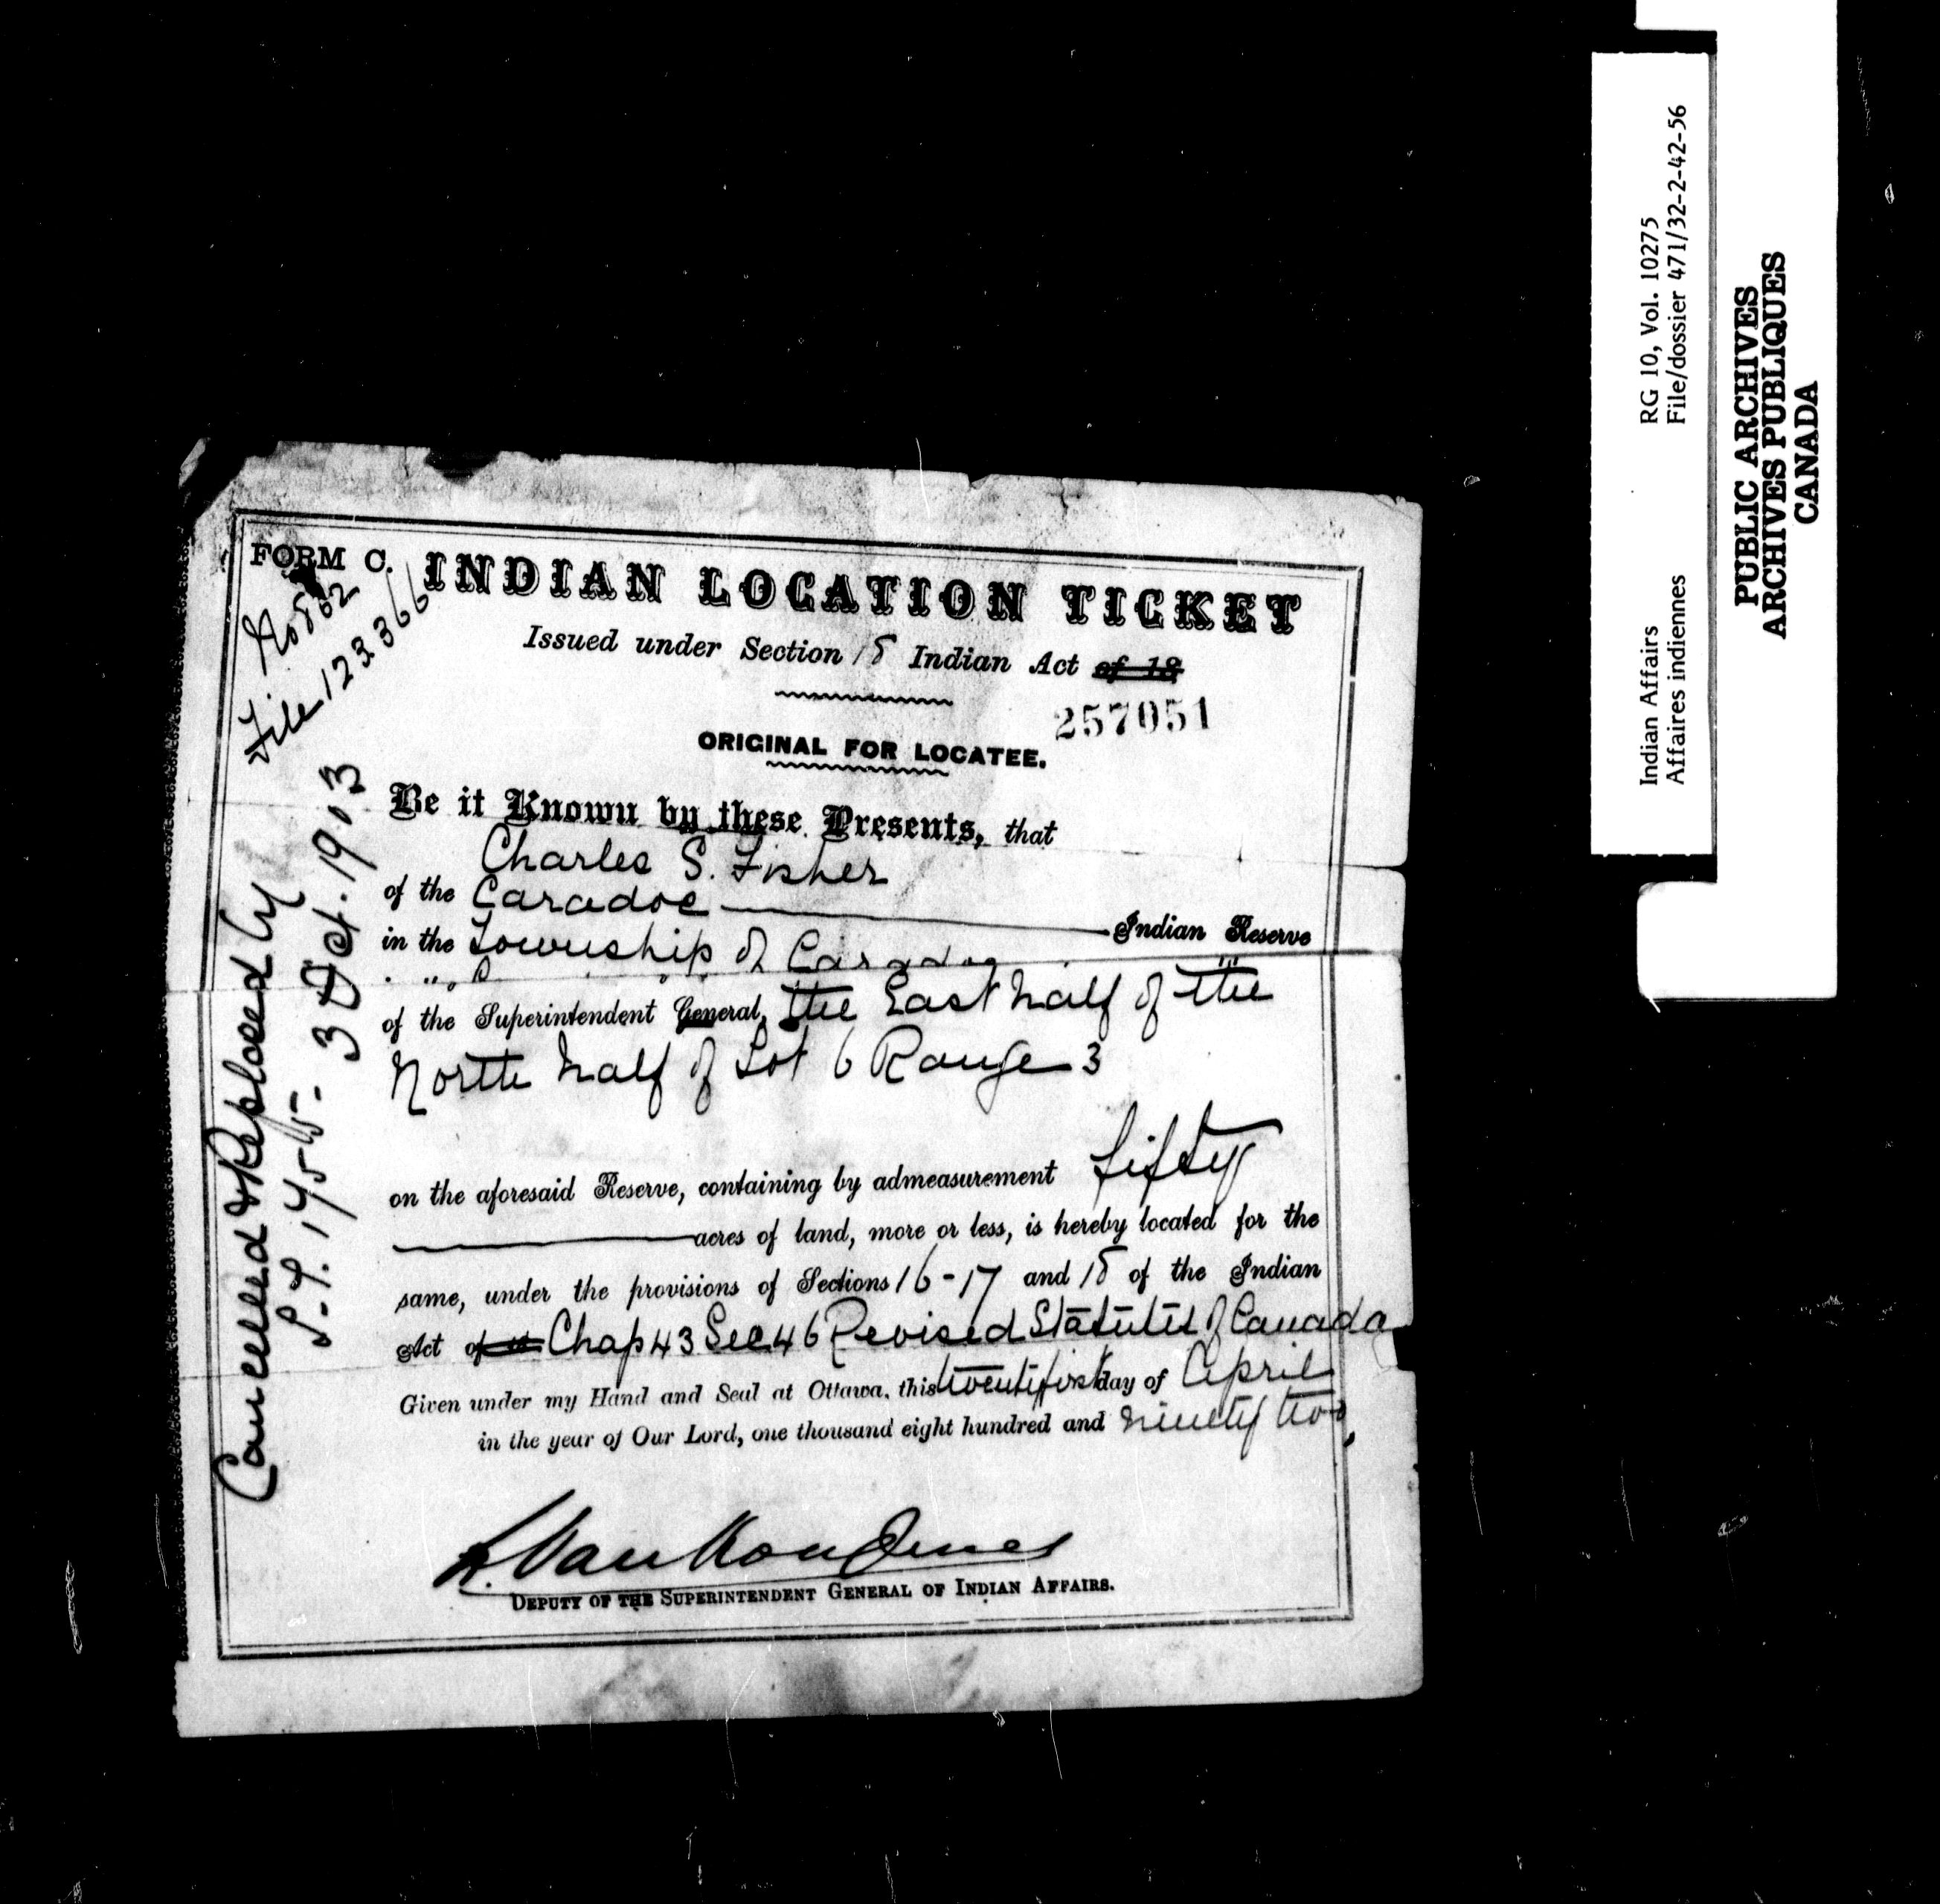 FORM C.
No 862
File 123366
INDIAN LOCATION TICKET
Issued under Section 18 Indian Act of 18
257051
ORIGINAL FOR LOCATEE.
Be it Known by these Presents, that
Charles S. Fisher
of the Caradoc Indian Reserve
in the Township of Caradoc
of the Superintendent General, the East half of the
North half of Lot 6 Range 3
on the aforesaid Reserve, containing by admeasurement fifty
acres of land, more or less, is hereby located for the
same, under the provisions of Sections 16-17 and 18 of the Indian
Act of Chap 43 Sec 46 Revised Statutes of Canada
Given under my Hand and Seal at Ottawa, this twenty first day of April
in the year of Our Lord, one thousand eight hundred and ninety two,
L. VanKoughnet
DEPUTY OF THE SUPERINTENDENT GENERAL OF INDIAN AFFAIRS.
Cancelled & Replaced by
L.T. 1755- 3 Oct. 1903
Indian Affairs RG 10, Vol. 10275
Affaires indiennes File/dossier 471/32-2-42-56
PUBLIC ARCHIVES
ARCHIVES PUBLIQUES
CANADA